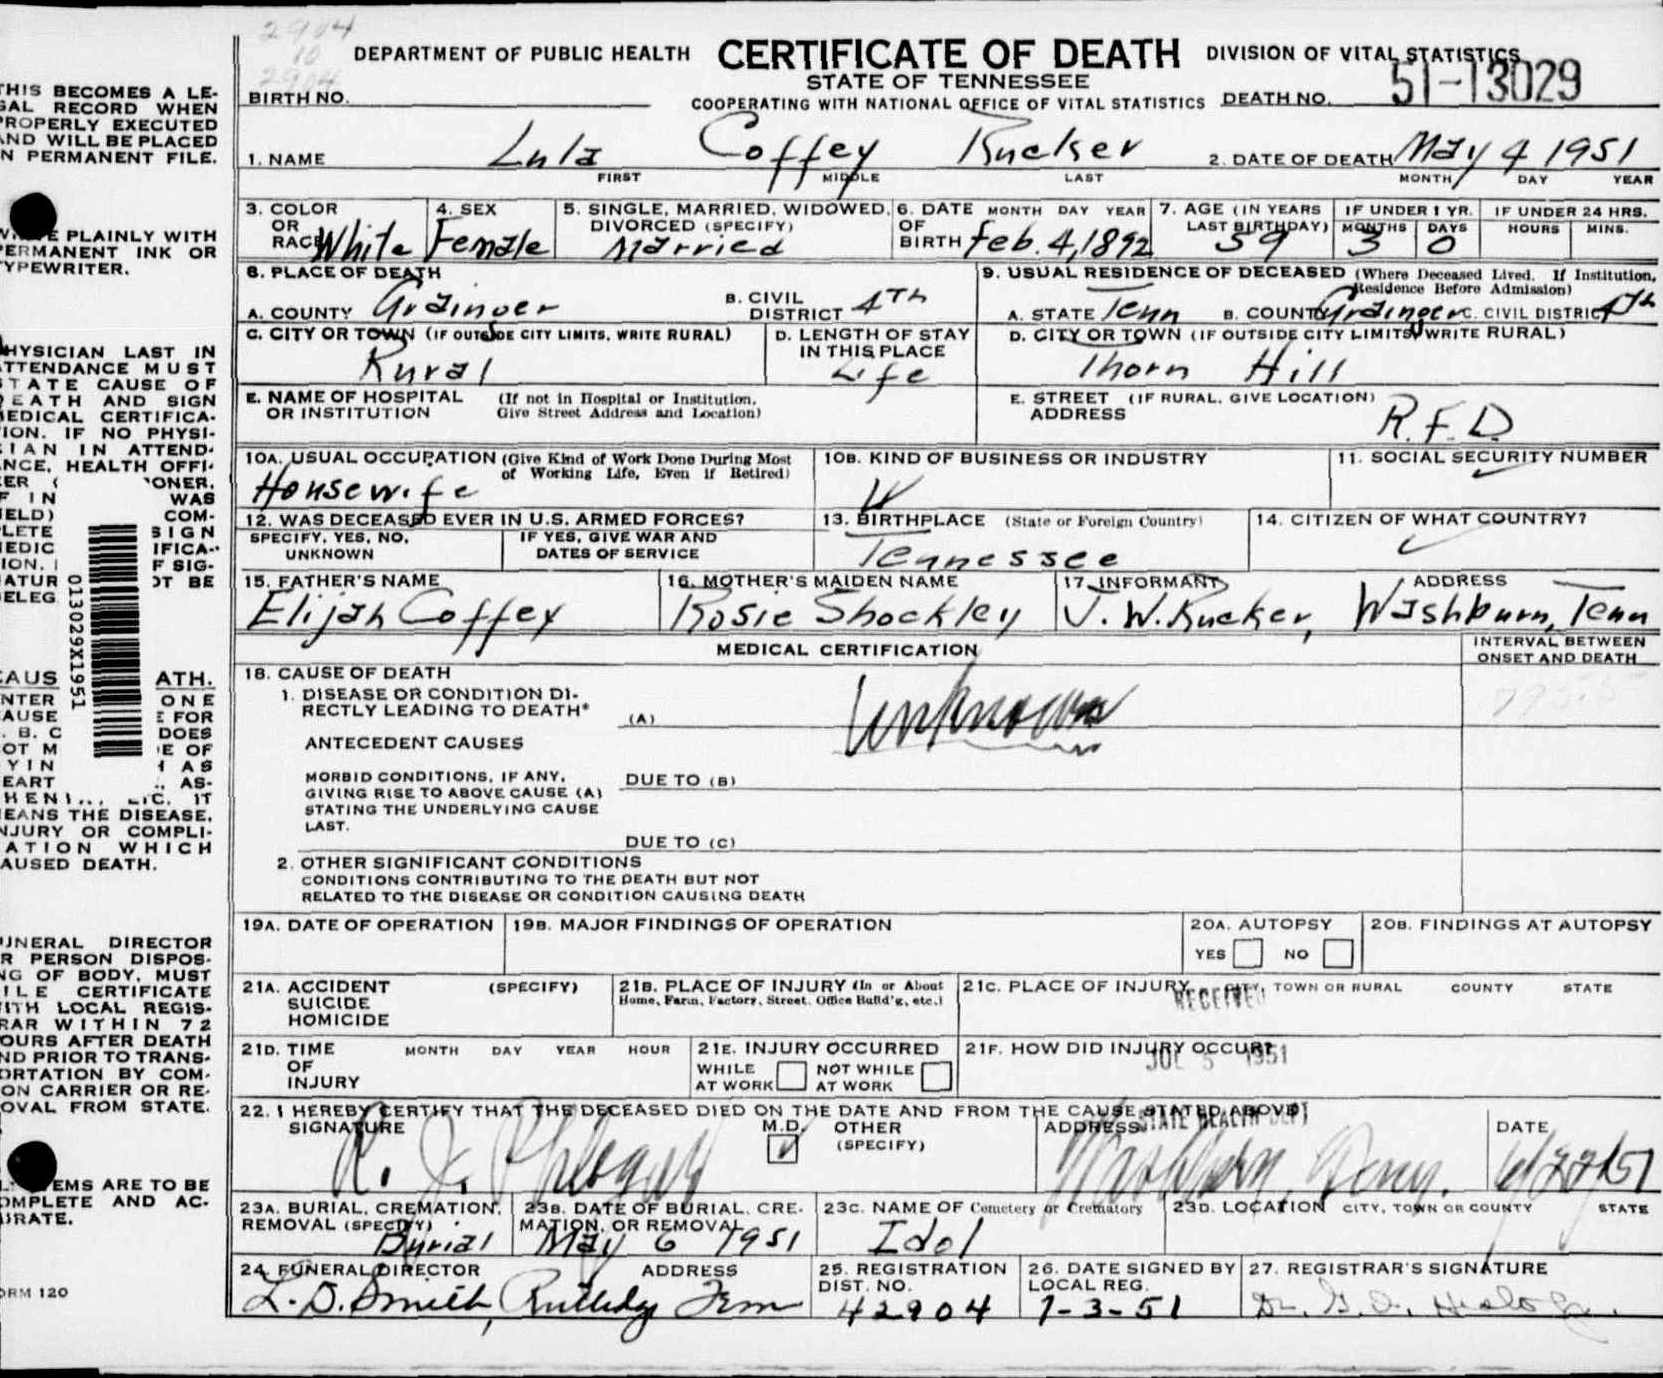 2904
10
2904
DEPARTMENT OF PUBLIC HEALTH CERTIFICATE OF DEATH DIVISION OF VITAL STATISTICS
STATE OF TENNESSEE
COOPERATING WITH NATIONAL OFFICE OF VITAL STATISTICS
BIRTH NO. DEATH NO. 51-13029
1. NAME Lula Coffey Rucker 2. DATE OF DEATH May 4 1951
FIRST MIDDLE LAST MONTH DAY YEAR
3. COLOR OR RACE White
4. SEX Female
5. SINGLE, MARRIED, WIDOWED, DIVORCED (SPECIFY) Married
6. DATE OF BIRTH MONTH DAY YEAR Feb. 4, 1892
7. AGE (IN YEARS LAST BIRTHDAY) 59
IF UNDER 1 YR. MONTHS 3 DAYS 0
IF UNDER 24 HRS. HOURS MINS.
8. PLACE OF DEATH
A. COUNTY Grainger
B. CIVIL DISTRICT 4th
9. USUAL RESIDENCE OF DECEASED (Where Deceased Lived. If Institution, Residence Before Admission)
A. STATE Tenn B. COUNTY Grainger C. CIVIL DISTRICT 4th
C. CITY OR TOWN (IF OUTSIDE CITY LIMITS, WRITE RURAL) Rural
D. LENGTH OF STAY IN THIS PLACE Life
D. CITY OR TOWN (IF OUTSIDE CITY LIMITS, WRITE RURAL) Thorn Hill
E. NAME OF HOSPITAL OR INSTITUTION (If not in Hospital or Institution, Give Street Address and Location)
E. STREET ADDRESS (IF RURAL, GIVE LOCATION) R.F.D.
10A. USUAL OCCUPATION (Give Kind of Work Done During Most of Working Life, Even if Retired) Housewife
10B. KIND OF BUSINESS OR INDUSTRY
11. SOCIAL SECURITY NUMBER
12. WAS DECEASED EVER IN U.S. ARMED FORCES?
SPECIFY, YES, NO, UNKNOWN
IF YES, GIVE WAR AND DATES OF SERVICE
13. BIRTHPLACE (State or Foreign Country) Tennessee
14. CITIZEN OF WHAT COUNTRY?
15. FATHER'S NAME Elijah Coffey
16. MOTHER'S MAIDEN NAME Rosie Shockley
17. INFORMANT ADDRESS J. W. Rucker, Washburn, Tenn
MEDICAL CERTIFICATION
INTERVAL BETWEEN ONSET AND DEATH
18. CAUSE OF DEATH
1. DISEASE OR CONDITION DIRECTLY LEADING TO DEATH* (A) Unknown
ANTECEDENT CAUSES
MORBID CONDITIONS, IF ANY, GIVING RISE TO ABOVE CAUSE (A) STATING THE UNDERLYING CAUSE LAST.
DUE TO (B)
DUE TO (C)
2. OTHER SIGNIFICANT CONDITIONS
CONDITIONS CONTRIBUTING TO THE DEATH BUT NOT
RELATED TO THE DISEASE OR CONDITION CAUSING DEATH
19A. DATE OF OPERATION
19B. MAJOR FINDINGS OF OPERATION
20A. AUTOPSY YES NO
20B. FINDINGS AT AUTOPSY
21A. ACCIDENT SUICIDE HOMICIDE (SPECIFY)
21B. PLACE OF INJURY (In or About Home, Farm, Factory, Street, Office Build'g, etc.)
21C. PLACE OF INJURY CITY, TOWN OR RURAL COUNTY STATE
RECEIVED
21D. TIME OF INJURY MONTH DAY YEAR HOUR
21E. INJURY OCCURRED WHILE AT WORK NOT WHILE AT WORK
21F. HOW DID INJURY OCCUR?
JUL 5 1951
STATE HEALTH DEPT
22. I HEREBY CERTIFY THAT THE DECEASED DIED ON THE DATE AND FROM THE CAUSE STATED ABOVE
SIGNATURE R. J.
M.D. OTHER (SPECIFY)
ADDRESS Washburn, Tenn.
DATE 6/22/51
23A. BURIAL, CREMATION, REMOVAL (SPECIFY) Burial
23B. DATE OF BURIAL, CREMATION, OR REMOVAL May 6 1951
23C. NAME OF Cemetery or Crematory Idol
23D. LOCATION CITY, TOWN OR COUNTY STATE
24. FUNERAL DIRECTOR ADDRESS L. D. Smith, Rutledge Tenn
25. REGISTRATION DIST. NO. 42904
26. DATE SIGNED BY LOCAL REG. 7-3-51
27. REGISTRAR'S SIGNATURE Dr. G. O.
THIS BECOMES A LE-
GAL RECORD WHEN
PROPERLY EXECUTED
AND WILL BE PLACED
IN PERMANENT FILE.
WRITE PLAINLY WITH
PERMANENT INK OR
TYPEWRITER.
PHYSICIAN LAST IN
ATTENDANCE MUST
STATE CAUSE OF
DEATH AND SIGN
MEDICAL CERTIFICA-
TION. IF NO PHYSI-
CIAN IN ATTEND-
ANCE, HEALTH OFFI-
013029X1951
MEANS THE DISEASE,
INJURY OR COMPLI-
CATION WHICH
CAUSED DEATH.
FUNERAL DIRECTOR
OR PERSON DISPOS-
ING OF BODY, MUST
FILE CERTIFICATE
WITH LOCAL REGIS-
TRAR WITHIN 72
HOURS AFTER DEATH
AND PRIOR TO TRANS-
PORTATION BY COM-
MON CARRIER OR RE-
MOVAL FROM STATE.
ALL ITEMS ARE TO BE
COMPLETE AND AC-
CURATE.
FORM 120